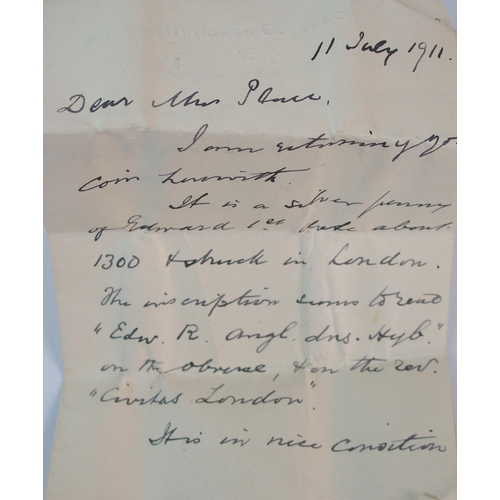 11 July 1911.
Dear Mrs Place,
I am returning yo
coin herewith.
It is a silver penny
of Edward 1st date about
1300 & struck in London.
The inscription seems to read
"Edw. R. Angl. dns. Hyb."
on the obverse, & on the rev.
"Civitas London".
It is in nice condition